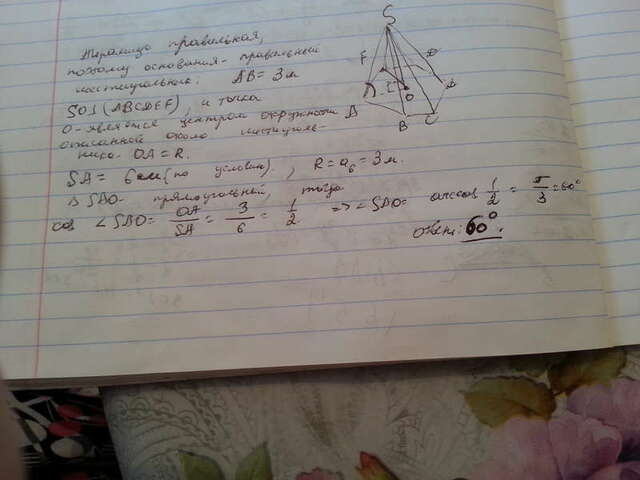 Пирамида правильная,
поэтому основания - правильный
шестиугольник. AB = 3м
SO⊥(ABCDEF), и точка
O - является центром окружности
описанной около шестиуголь-
ника. OA = R.
SA = 6см (по условию), R = a₆ = 3м.
△ SAO - прямоугольный, тогда
cos ∠SAO = OA/SA = 3/6 = 1/2 => ∠SAO = arccos 1/2 = π/3 = 60°
ответ: 60°.
S
F
O
B
C